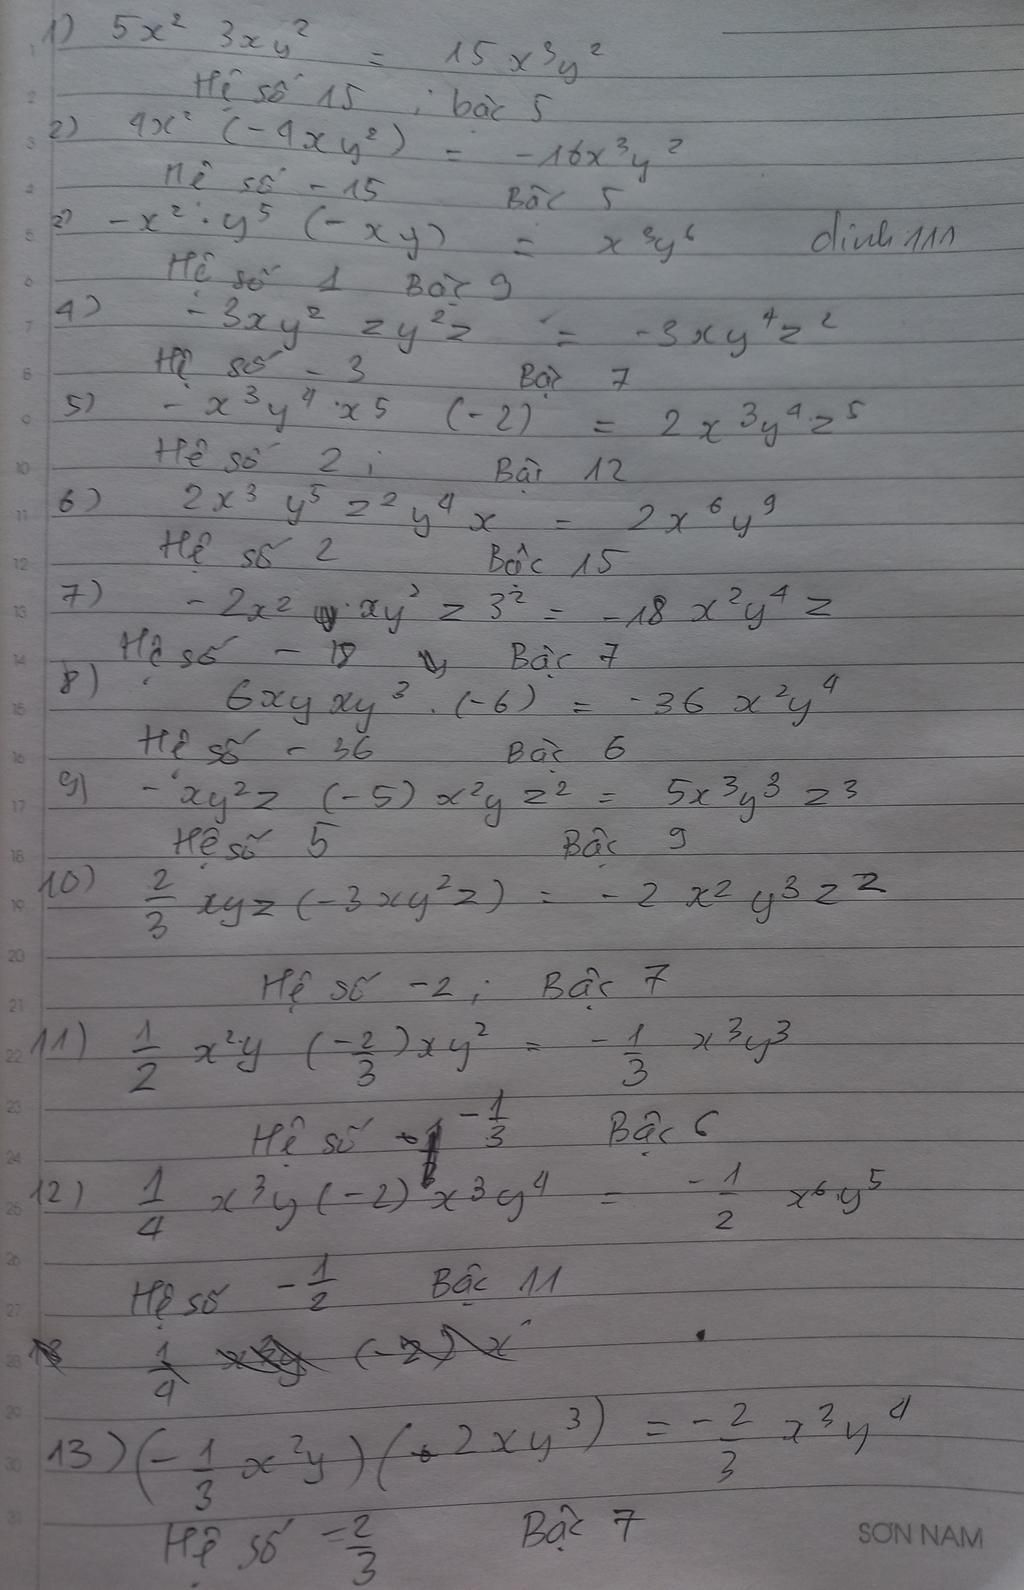 1) 5x² 3xy² = 15x³y²
Hệ số 15 ; bậc 5
2) 4x² (-4xy²) = -16x³y²
Hệ số -15 Bậc 5
3) -x²·y⁵ (-xy) = x³y⁶ dinh111
Hệ số 1 Bậc 9
4) -3xy² zy²z = -3xy⁴z²
Hệ số -3 Bậc 7
5) -x³y⁴·x5 (-2) = 2x³y⁴z⁵
Hệ số 2 ; Bậc 12
6) 2x³ y⁵ z² y⁴ x = 2x⁶y⁹
Hệ số 2 Bậc 15
7) -2x² · xy² z 3² = -18 x²y⁴ z
Hệ số -18 Bậc 7
8) 6xy xy³ · (-6) = -36 x²y⁴
Hệ số -36 Bậc 6
9) -xy²z (-5) x²y z² = 5x³y³ z³
Hệ số 5 Bậc 9
10) 2/3 xyz (-3xy²z) = -2 x² y³ z²
Hệ số -2 ; Bậc 7
11) 1/2 x²y (-2/3) xy² = -1/3 x³y³
Hệ số -1/3 Bậc 6
12) 1/4 x³y (-2) x³y⁴ = -1/2 x⁶·y⁵
Hệ số -1/2 Bậc 11
13) (-1/3 x²y) (2xy³) = -2/3 x³y⁴
Hệ số -2/3 Bậc 7
SƠN NAM